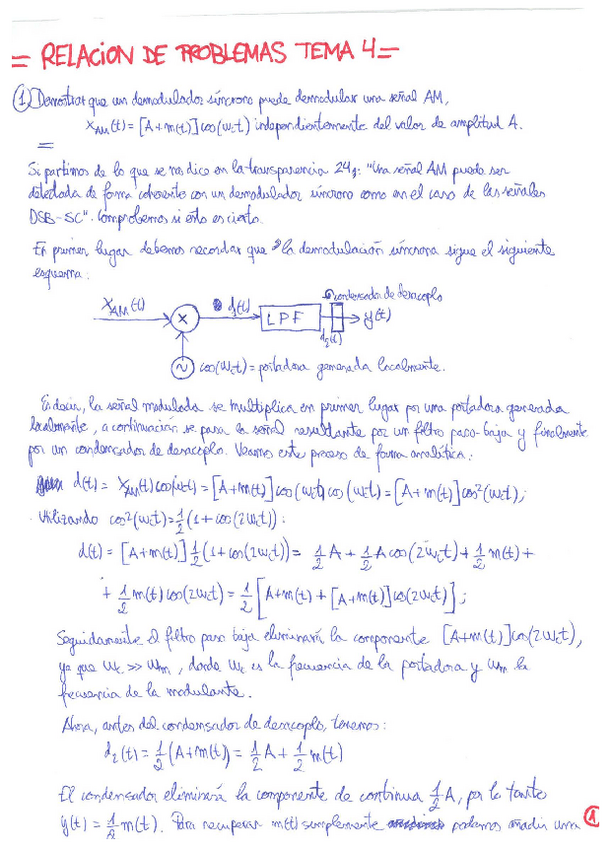 = RELACION DE PROBLEMAS TEMA 4 =
① Demostrar que un demodulador síncrono puede demodular una señal AM,
x_AM(t) = [A+m(t)] cos(ω_c t) independientemente del valor de amplitud A.
=
Si partimos de lo que se nos dice en la transparencia 24: "Una señal AM puede ser
detectada de forma coherente con un demodulador síncrono como en el caso de las señales
DSB-SC". Comprobemos si esto es cierto.
En primer lugar debemos recordar que la demodulación síncrona sigue el siguiente
esquema:
condensador de desacoplo
x_AM(t) × d(t) LPF y(t)
d_2(t)
~ cos(ω_c t) = portadora generada localmente.
Es decir, la señal modulada se multiplica en primer lugar por una portadora generada
localmente, a continuación se pasa la señal resultante por un filtro paso-baja y finalmente
por un condensador de desacoplo. Veamos este proceso de forma analítica:
d(t) = x_AM(t) cos(ω_c t) = [A+m(t)] cos(ω_c t) cos(ω_c t) = [A+m(t)] cos²(ω_c t);
Utilizando cos²(ω_c t) = 1/2 (1 + cos(2ω_c t)):
d(t) = [A+m(t)] 1/2 (1+cos(2ω_c t)) = 1/2 A + 1/2 A cos(2ω_c t) + 1/2 m(t) +
+ 1/2 m(t) cos(2ω_c t) = 1/2 [A+m(t) + [A+m(t)] cos(2ω_c t)];
Seguidamente el filtro paso baja eliminará la componente [A+m(t)] cos(2ω_c t),
ya que ω_c >> ω_m, donde ω_c es la frecuencia de la portadora y ω_m la
frecuencia de la modulante.
Ahora, antes del condensador de desacoplo, tenemos:
d_2(t) = 1/2 (A+m(t)) = 1/2 A + 1/2 m(t)
El condensador eliminará la componente de continua 1/2 A, por lo tanto
y(t) = 1/2 m(t). Para recuperar m(t) simplemente podemos añadir una
①